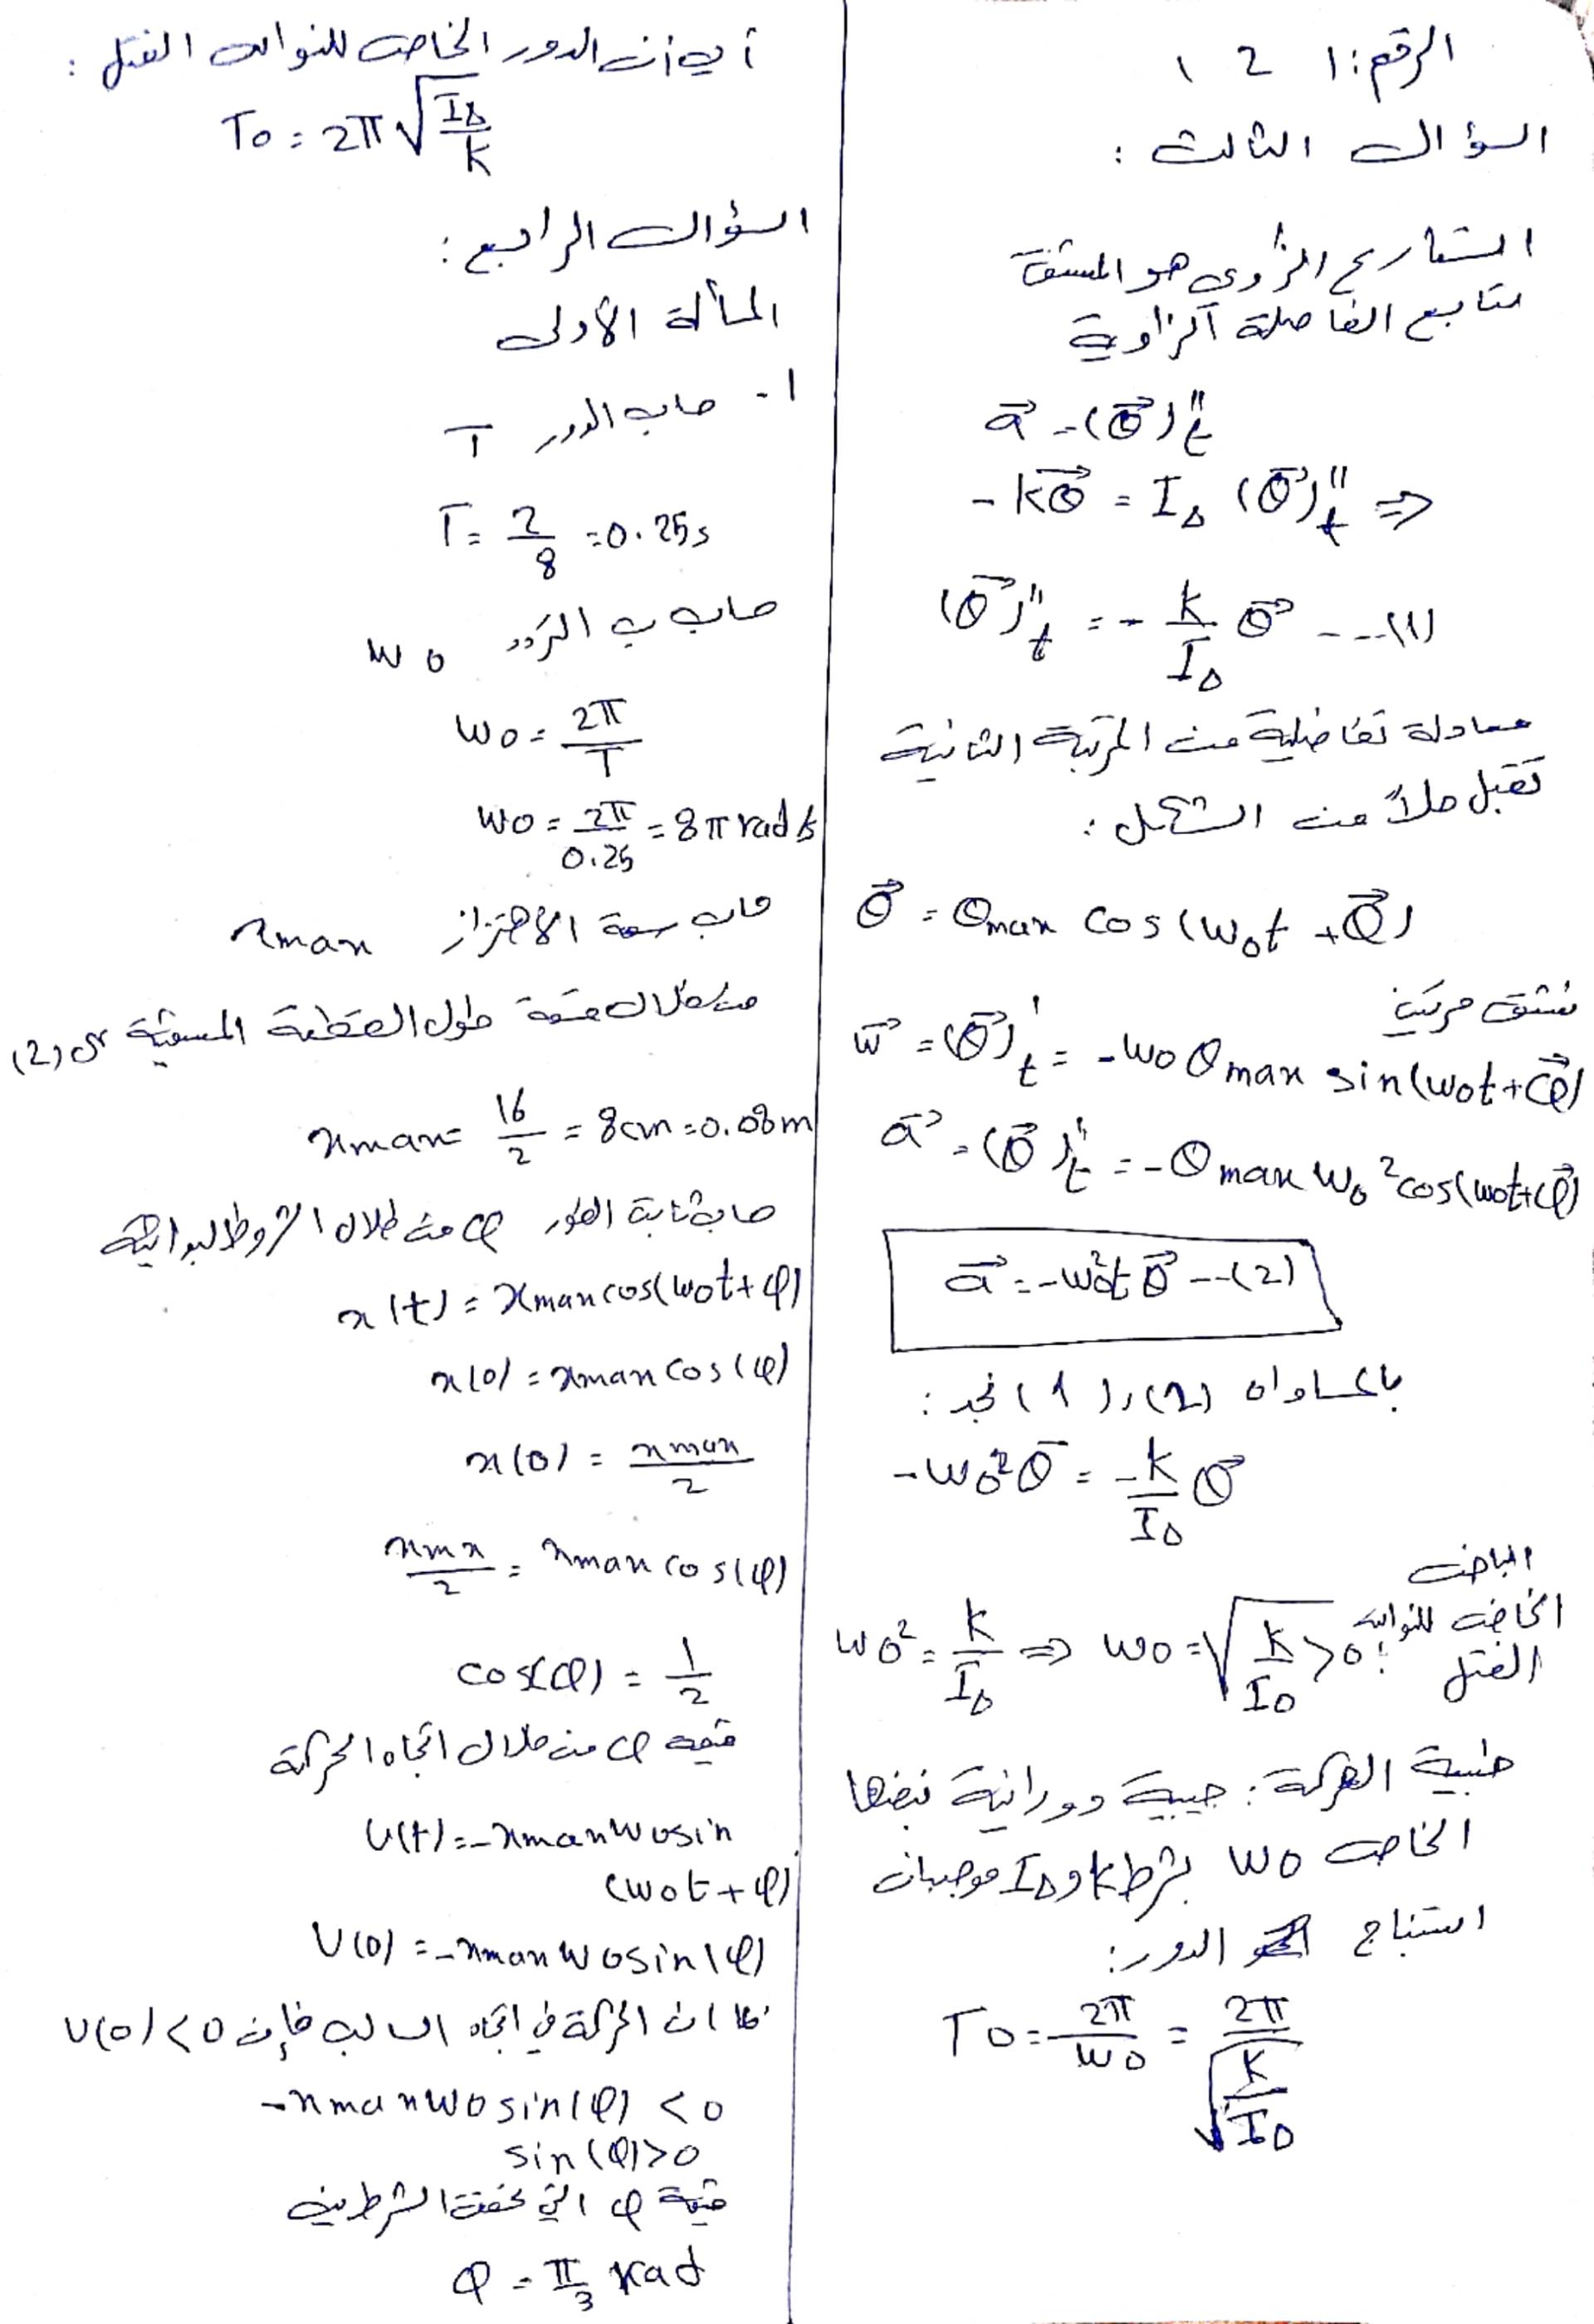 الرقم: 1 2 1
السؤال الثالث :
التسارع الزاوي هو المشتق
لتابع الفاصلة الزاوية
a = (θ)"t
- kθ = IΔ (θ)"t ⇒
(θ)"t = - k/IΔ θ ---(1)
معادلة تفاضلية من المرتبة الثانية
تقبل حلاً من الشكل :
θ = θmax cos(ω0t + φ)
نشتق مرتين
ω = (θ)'t = -ω0 θmax sin(ω0t + φ)
a = (θ)"t = -θmax ω0²cos(ω0t+φ)
a = -ω0²t θ --(2)
بالمساواة (2) و (1) نجد :
-ω0²θ = -k/IΔ θ
ω0² = k/IΔ ⇒ ω0 = √(k/IΔ) > 0 :
الخاص للنواس
الفتل
طبيعة الحركة : جيبية دورانية نبضها
الخاص ω0 بشرط k و IΔ موجبان
استنتاج الدور :
T0 = 2π/ω0 = 2π/√(k/IΔ)
أي أن الدور الخاص للنواس الفتل :
T0 = 2π√(IΔ/k)
السؤال الرابع :
المسألة الأولى
1- حساب الدور T
T = 2/8 = 0.25s
حساب التردد ω0
ω0 = 2π/T
ω0 = 2π/0.25 = 8π rad/s
حساب سعة الاهتزاز xmax
من خلال قيمة طول القطعة المستقيمة على (2)
xmax = 16/2 = 8cm = 0.08m
حساب ثابتة الطور φ من خلال الشروط البدائية
x(t) = xmaxcos(ω0t + φ)
x(0) = xmax cos(φ)
x(0) = xmax/2
xmx/2 = xmax cos(φ)
cos(φ) = 1/2
قيمة φ من خلال اتجاه الحركة
v(t) = -xmaxω0sin
(ω0t + φ)
v(0) = -xmaxω0sin(φ)
بما ان الحركة في اتجاه السالب فإن v(0) < 0
-xmaxω0sin(φ) < 0
sin(φ) > 0
قيمة φ التي تحقق الشرطين
φ = π/3 rad